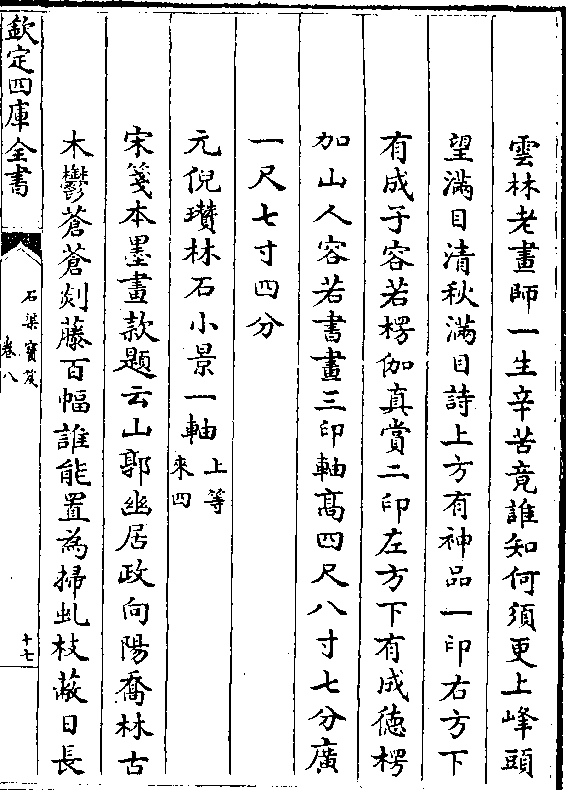 雲林老畫師一生辛苦竟誰知何須更上峰頭
望滿目清秋滿目詩上方有神品一印右方下
有成子容若楞伽真賞二印左方下有成德楞
伽山人容若書畫三印軸高四尺八寸七分廣
一尺七寸四分
元倪瓚林石小景一軸上等來四
宋箋本墨畫款題云山郭幽居政向陽喬林古
木鬱蒼蒼剡藤百幅誰能置為掃虬枝蔽日長
欽定四庫全書
石渠寶笈
卷八
十七